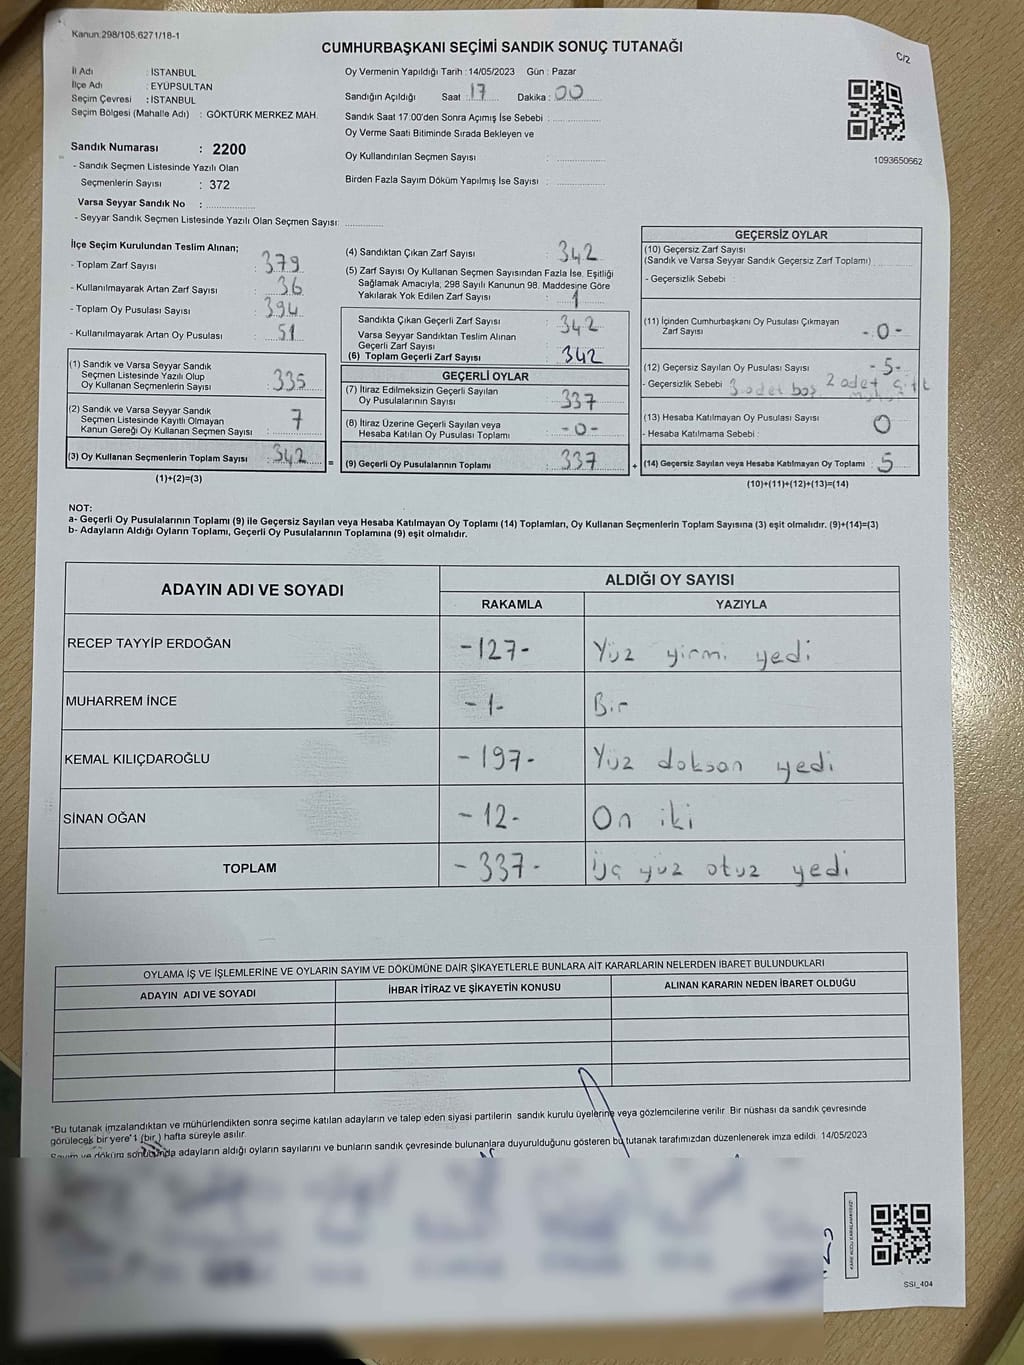 Kanun:298/105:6271/18-1
CUMHURBAŞKANI SEÇİMİ SANDIK SONUÇ TUTANAĞI
C/2
İl Adı : İSTANBUL
İlçe Adı : EYÜPSULTAN
Seçim Çevresi : İSTANBUL
Seçim Bölgesi (Mahalle Adı) : GÖKTÜRK MERKEZ MAH.
Sandık Numarası : 2200
- Sandık Seçmen Listesinde Yazılı Olan
Seçmenlerin Sayısı : 372
Varsa Seyyar Sandık No :
- Seyyar Sandık Seçmen Listesinde Yazılı Olan Seçmen Sayısı:
Oy Vermenin Yapıldığı Tarih : 14/05/2023 Gün : Pazar
Sandığın Açıldığı Saat : 17 Dakika : 00
Sandık Saat 17.00'den Sonra Açımış İse Sebebi :
Oy Verme Saati Bitiminde Sırada Bekleyen ve
Oy Kullandırılan Seçmen Sayısı :
Birden Fazla Sayım Döküm Yapılmış İse Sayısı :
1093650662
İlçe Seçim Kurulundan Teslim Alınan;
- Toplam Zarf Sayısı : 379
- Kullanılmayarak Artan Zarf Sayısı : 36
- Toplam Oy Pusulası Sayısı : 394
- Kullanılmayarak Artan Oy Pusulası : 51
(1) Sandık ve Varsa Seyyar Sandık
Seçmen Listesinde Yazılı Olup
Oy Kullanan Seçmenlerin Sayısı : 335
(2) Sandık ve Varsa Seyyar Sandık
Seçmen Listesinde Kayıtlı Olmayan
Kanun Gereği Oy Kullanan Seçmen Sayısı : 7
(3) Oy Kullanan Seçmenlerin Toplam Sayısı : 342
(1)+(2)=(3)
=
(4) Sandıktan Çıkan Zarf Sayısı : 342
(5) Zarf Sayısı Oy Kullanan Seçmen Sayısından Fazla İse, Eşitliği
Sağlamak Amacıyla, 298 Sayılı Kanunun 98. Maddesine Göre
Yakılarak Yok Edilen Zarf Sayısı : 1
Sandıkta Çıkan Geçerli Zarf Sayısı : 342
Varsa Seyyar Sandıktan Teslim Alınan
Geçerli Zarf Sayısı :
(6) Toplam Geçerli Zarf Sayısı 342
GEÇERLİ OYLAR
(7) İtiraz Edilmeksizin Geçerli Sayılan
Oy Pusulalarının Sayısı : 337
(8) İtiraz Üzerine Geçerli Sayılan veya
Hesaba Katılan Oy Pusulası Toplamı : -0-
(9) Geçerli Oy Pusulalarının Toplamı : 337
+
GEÇERSİZ OYLAR
(10) Geçersiz Zarf Sayısı
(Sandık ve Varsa Seyyar Sandık Geçersiz Zarf Toplamı)
- Geçersizlik Sebebi :
(11) İçinden Cumhurbaşkanı Oy Pusulası Çıkmayan
Zarf Sayısı -0-
(12) Geçersiz Sayılan Oy Pusulası Sayısı -5-
- Geçersizlik Sebebi 3 adet boş 2 adet çift
(13) Hesaba Katılmayan Oy Pusulası Sayısı 0
- Hesaba Katılmama Sebebi :
(14) Geçersiz Sayılan veya Hesaba Katılmayan Oy Toplamı : 5
(10)+(11)+(12)+(13)=(14)
NOT:
a- Geçerli Oy Pusulalarının Toplamı (9) ile Geçersiz Sayılan veya Hesaba Katılmayan Oy Toplamı (14) Toplamları, Oy Kullanan Seçmenlerin Toplam Sayısına (3) eşit olmalıdır. (9)+(14)=(3)
b- Adayların Aldığı Oyların Toplamı, Geçerli Oy Pusulalarının Toplamına (9) eşit olmalıdır.
ADAYIN ADI VE SOYADI
ALDIĞI OY SAYISI
RAKAMLA YAZIYLA
RECEP TAYYİP ERDOĞAN -127- Yüz yirmi yedi
MUHARREM İNCE -1- Bir
KEMAL KILIÇDAROĞLU -197- Yüz doksan yedi
SİNAN OĞAN -12- On iki
TOPLAM -337- Üç yüz otuz yedi
OYLAMA İŞ VE İŞLEMLERİNE VE OYLARIN SAYIM VE DÖKÜMÜNE DAİR ŞİKAYETLERLE BUNLARA AİT KARARLARIN NELERDEN İBARET BULUNDUKLARI
ADAYIN ADI VE SOYADI İHBAR İTİRAZ VE ŞİKAYETİN KONUSU ALINAN KARARIN NEDEN İBARET OLDUĞU
*Bu tutanak imzalandıktan ve mühürlendikten sonra seçime katılan adayların ve talep eden siyasi partilerin sandık kurulu üyelerine veya gözlemcilerine verilir. Bir nüshası da sandık çevresinde
görülecek bir yere 1 (bir) hafta süreyle asılır.
Sayım ve döküm sonucunda adayların aldığı oyların sayılarını ve bunların sandık çevresinde bulunanlara duyurulduğunu gösteren bu tutanak tarafımızdan düzenlenerek imza edildi. 14/05/2023
SSI_404